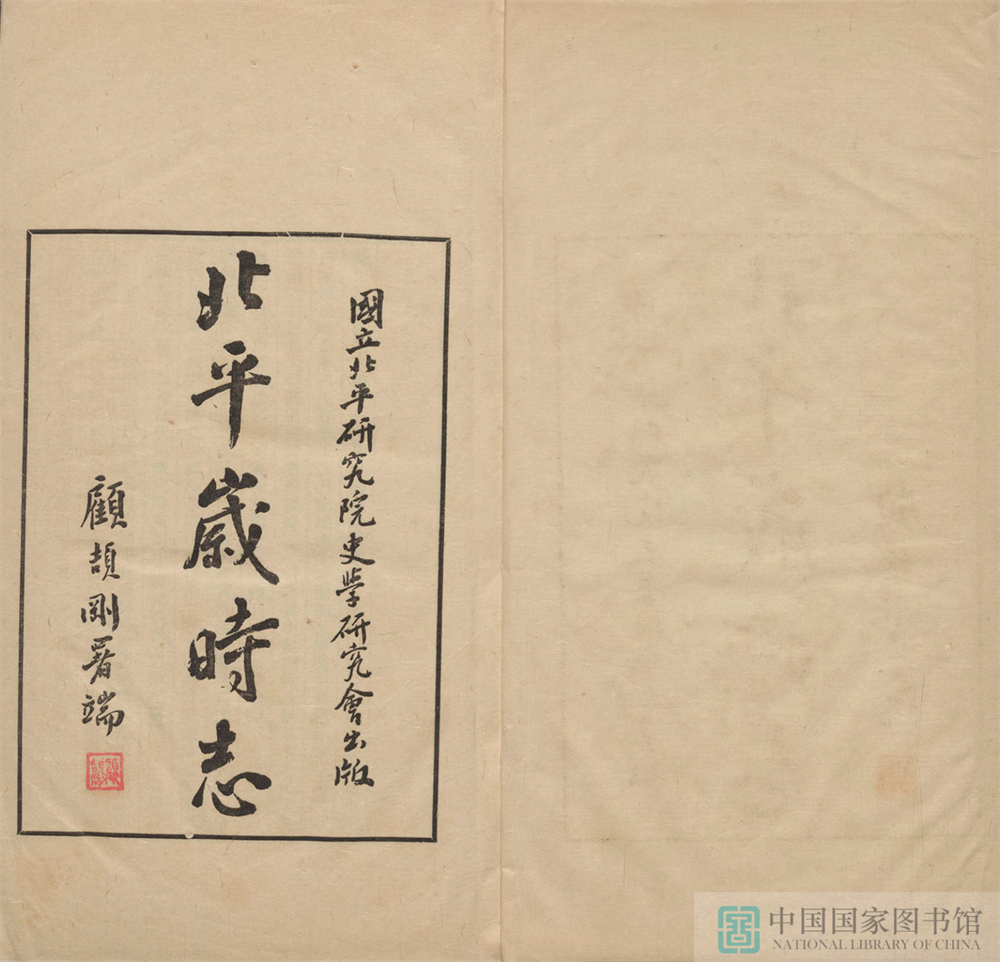 國立北平研究院史學研究會出版
北平歲時志
顧頡剛署端
中国国家图书馆
NATIONAL LIBRARY OF CHINA